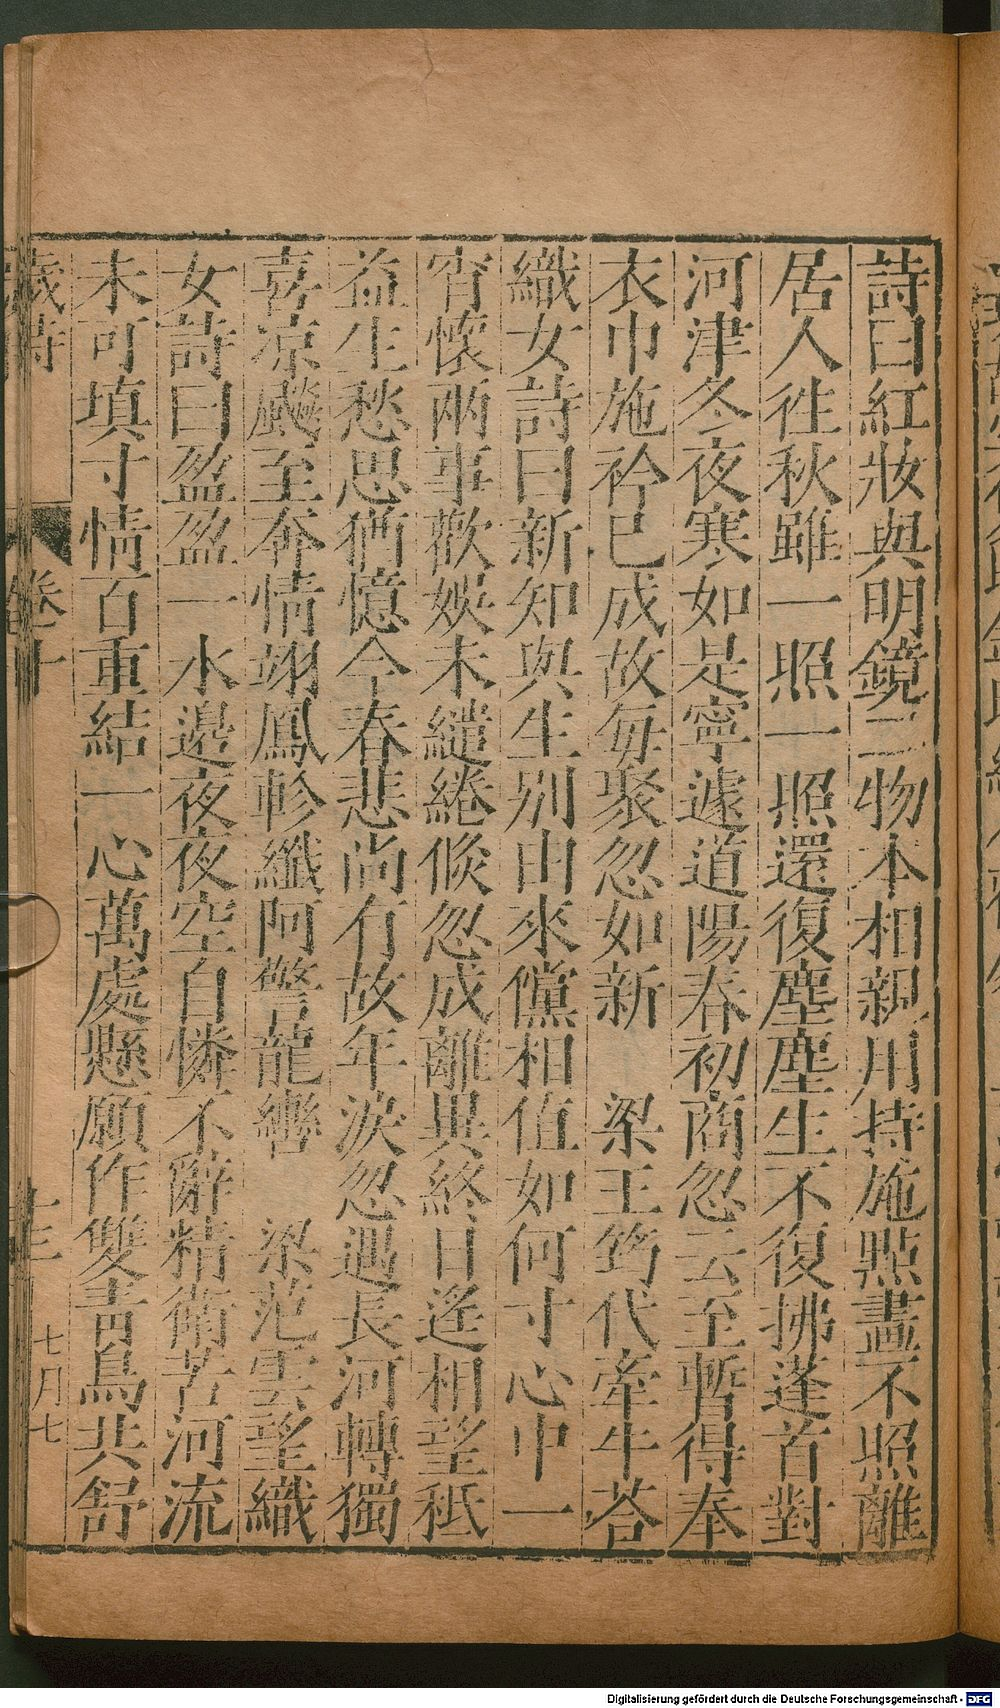 詩曰紅妝與明鏡二物本相親用持施點畫不照離
居人徃秋雖一照一照還復塵塵生不復拂蓬首對
河津冬夜寒如是寧遽道陽春初商忽云至暫得奉
衣巾施衿已成故每聚忽如新　梁王筠代牽牛荅
織女詩曰新知與生別由來儻相值如何寸心中一
宵懷兩事歡娛未繾綣倐忽成離異終日遙相望秪
益生愁思猶憶今春悲尚有故年淚忽遇長河轉獨
喜凉飈至奔情翊鳳軫纖阿警龍轡　梁范雲望織
女詩曰盈盈一水邉夜夜空自憐不辭精衛苦河流
未可填寸情百重結一心萬處懸願作雙青鳥共舒
歲時　卷十　十三　七月七
Digitalisierung gefördert durch die Deutsche Forschungsgemeinschaft - DFG